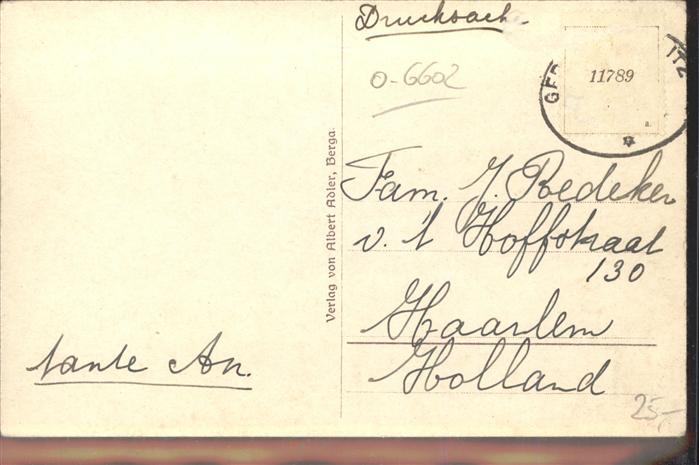 Drucksach.
0-6602
11789
a.
GER
ITZ
Verlag von Albert Adler, Berga
Fam. J. Redeker
v. 't Hoffstraat
130
Haarlem
Holland
tante An.
25,-